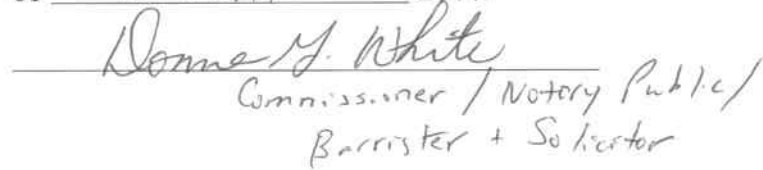 Donna G. White
Commissioner / Notary Public /
Barrister + Solicitor